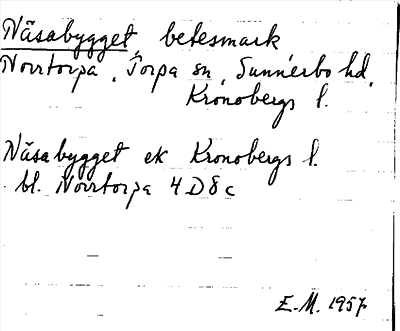 Näsabygget, betesmark
Norrtorpa, Torpa sn, Sunnerbo hd,
Kronobergs l.
Näsabygget ek Kronobergs l.
bl. Norrtorpa 4D8c
E.M. 1957